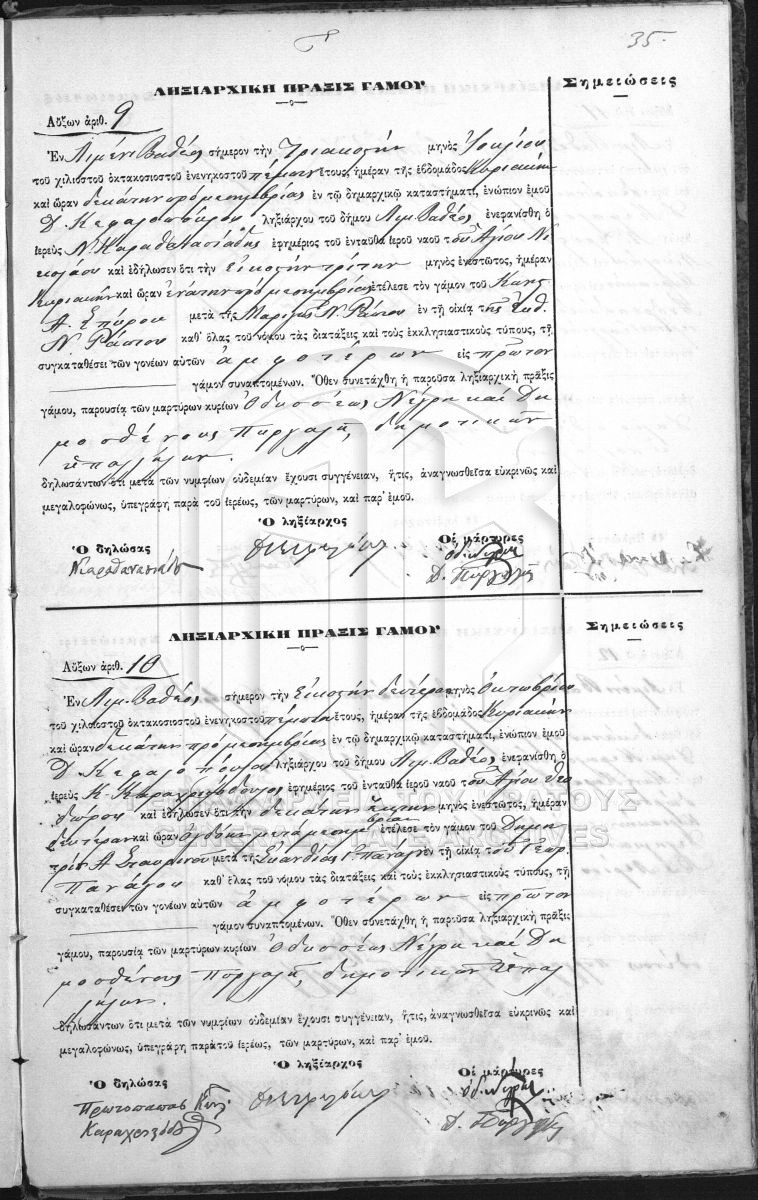 35.
ΛΗΞΙΑΡΧΙΚΗ ΠΡΑΞΙΣ ΓΑΜΟΥ
Σημειώσεις
Αὔξων ἀριθ. 9
Ἐν Λιμένι Βαθέος σήμερον τὴν Τριακοστὴν μηνὸς Ἰουλίου
τοῦ χιλιοστοῦ ὀκτακοσιοστοῦ ἐνενηκοστοῦ πέμπτου ἔτους, ἡμέραν τῆς ἑβδομάδος Κυριακὴν
καὶ ὥραν δεκάτην πρὸ μεσημβρίας ἐν τῷ δημαρχικῷ καταστήματι, ἐνώπιον ἐμοῦ
Δ. Κεφαλοπούλου ληξιάρχου τοῦ δήμου Λιμ. Βαθέος ἐνεφανίσθη ὁ
ἱερεὺς Ν. Καραθανασιάδης ἐφημέριος τοῦ ἐνταῦθα ἱεροῦ ναοῦ τοῦ Ἁγίου Νι
κολάου καὶ ἐδήλωσεν ὅτι τὴν Εἰκοστὴν τρίτην μηνὸς ἐνεστῶτος, ἡμέραν
Κυριακὴν καὶ ὥραν ἐνάτην πρὸ μεσημβρίας ἐτέλεσε τὸν γάμον τοῦ Κωνς
Α. Σπύρου μετὰ τῆς Μαριγῶς Ν. Ράπτου ἐν τῇ οἰκίᾳ τῆς
Ν. Ράπτου καθ' ὅλας τοῦ νόμου τὰς διατάξεις καὶ τοὺς ἐκκλησιαστικοὺς τύπους, τῇ
συγκαταθέσει τῶν γονέων αὐτῶν ἀμφοτέρων εἰς πρῶτον
γάμον συναπτομένων. Ὅθεν συνετάχθη ἡ παροῦσα ληξιαρχικὴ πρᾶξις
γάμου, παρουσίᾳ τῶν μαρτύρων κυρίων Ὀδυσσέως Νέγρη καὶ Δη
μοσθένους Πυργαλῆ, δημοτικῶν
ὑπαλλήλων.
δηλωσάντων ὅτι μετὰ τῶν νυμφίων οὐδεμίαν ἔχουσι συγγένειαν, ἥτις, ἀναγνωσθεῖσα εὐκρινῶς καὶ
μεγαλοφώνως, ὑπεγράφη παρὰ τοῦ ἱερέως, τῶν μαρτύρων, καὶ παρ' ἐμοῦ.
Ὁ ληξίαρχος
Ὁ δηλώσας
Οἱ μάρτυρες
ΛΗΞΙΑΡΧΙΚΗ ΠΡΑΞΙΣ ΓΑΜΟΥ
Σημειώσεις
Αὔξων ἀριθ. 10
Ἐν Λιμ. Βαθέος σήμερον τὴν Εἰκοστὴν δευτέραν μηνὸς Ὀκτωβρίου
τοῦ χιλιοστοῦ ὀκτακοσιοστοῦ ἐνενηκοστοῦ πέμπτου ἔτους, ἡμέραν τῆς ἑβδομάδος Κυριακὴν
καὶ ὥραν δεκάτην πρὸ μεσημβρίας ἐν τῷ δημαρχικῷ καταστήματι, ἐνώπιον ἐμοῦ
Δ. Κεφαλοπούλου ληξιάρχου τοῦ δήμου Λιμ. Βαθέος ἐνεφανίσθη ὁ
ἱερεὺς Κ. ἐφημέριος τοῦ ἐνταῦθα ἱεροῦ ναοῦ τοῦ Ἁγίου Θεο
δώρου καὶ ἐδήλωσεν ὅτι τὴν δεκάτην ἕκτην μηνὸς ἐνεστῶτος, ἡμέραν
Δευτέραν καὶ ὥραν ὀγδόην μετὰ μεσημβρίαν ἐτέλεσε τὸν γάμον τοῦ Δημη
τρίου Α. Σταυρινοῦ μετὰ τῆς Εὐανθίας Γ. Πανάγου τῇ οἰκίᾳ τοῦ Γεωρ.
Πανάγου καθ' ὅλας τοῦ νόμου τὰς διατάξεις καὶ τοὺς ἐκκλησιαστικοὺς τύπους, τῇ
συγκαταθέσει τῶν γονέων αὐτῶν ἀμφοτέρων εἰς πρῶτον
γάμον συναπτομένων. Ὅθεν συνετάχθη ἡ παροῦσα ληξιαρχικὴ πρᾶξις
γάμου, παρουσίᾳ τῶν μαρτύρων κυρίων Ὀδυσσέως Νέγρη καὶ Δη
μοσθένους Πυργαλῆ, δημοτικῶν ὑπαλ
λήλων.
δηλωσάντων ὅτι μετὰ τῶν νυμφίων οὐδεμίαν ἔχουσι συγγένειαν, ἥτις, ἀναγνωσθεῖσα εὐκρινῶς καὶ
μεγαλοφώνως, ὑπεγράφη παρὰ τοῦ ἱερέως, τῶν μαρτύρων, καὶ παρ' ἐμοῦ.
Ὁ ληξίαρχος
Ὁ δηλώσας
Οἱ μάρτυρες
Πρωτοπαπᾶς